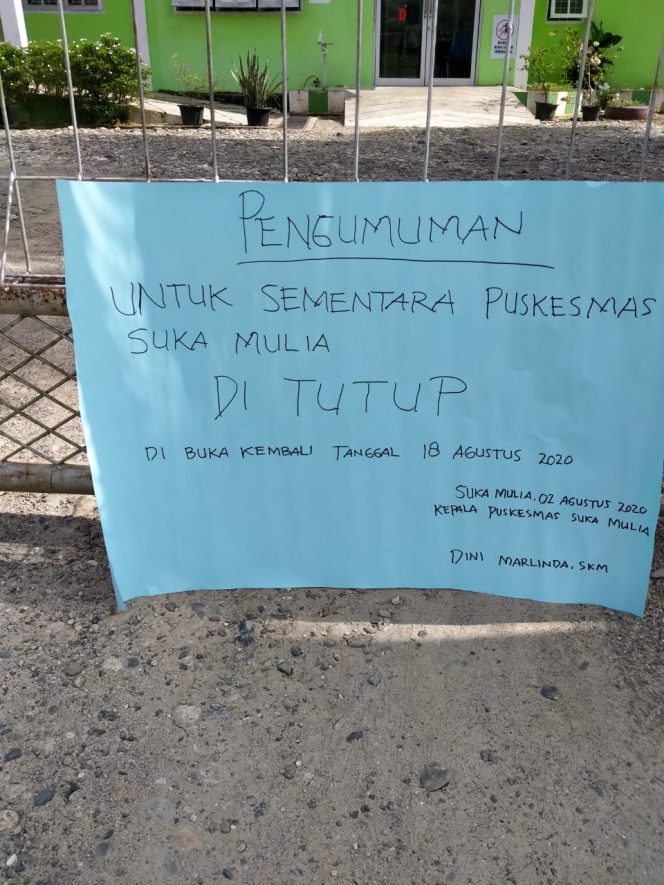 PENGUMUMAN
UNTUK SEMENTARA PUSKESMAS
SUKA MULIA
DI TUTUP
DI BUKA KEMBALI TANGGAL 18 AGUSTUS 2020
SUKA MULIA, 02 AGUSTUS 2020
KEPALA PUSKESMAS SUKA MULIA
DINI MARLINDA, SKM